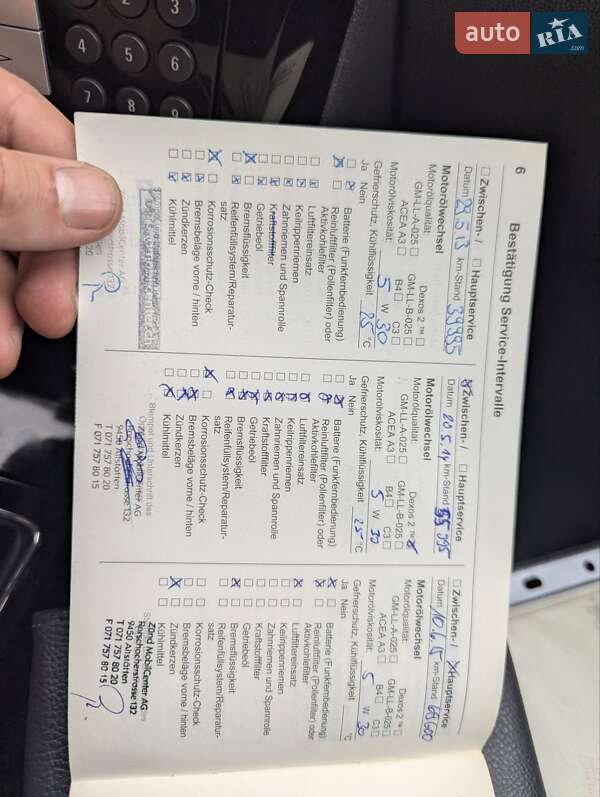 auto RIA .com
3
4
5
6
7
8
9
6
Bestätigung Service-Intervalle
Zwischen- / Hauptservice
Datum 29.5.13 km-Stand 39993
Motorölwechsel
Motorölqualität: Dexos 2 ™
GM-LL-A-025 GM-LL-B-025
ACEA A3 B4 C3
Motorölviskosität: 5 W 30
Gefrierschutz, Kühlflüssigkeit 25 °C
Ja Nein
Batterie (Funkfernbedienung)
Reinluftfilter (Pollenfilter) oder
Aktivkohlefilter
Luftfiltereinsatz
Keilrippenriemen
Zahnriemen und Spannrolle
Kraftstofffilter
Getriebeöl
Bremsflüssigkeit
Reifenfüllsystem/Reparatur-
satz
Korrosionsschutz-Check
Bremsbeläge vorne / hinten
Zündkerzen
Kühlmittel
Zwischen- / Hauptservice
Datum 20.5.14 km-Stand
Motorölwechsel
Motorölqualität: Dexos 2 ™
GM-LL-A-025 GM-LL-B-025
ACEA A3 B4 C3
Motorölviskosität: 5 W 30
Gefrierschutz, Kühlflüssigkeit 25 °C
Ja Nein
Batterie (Funkfernbedienung)
Reinluftfilter (Pollenfilter) oder
Aktivkohlefilter
Luftfiltereinsatz
Keilrippenriemen
Zahnriemen und Spannrolle
Kraftstofffilter
Getriebeöl
Bremsflüssigkeit
Reifenfüllsystem/Reparatur-
satz
Korrosionsschutz-Check
Bremsbeläge vorne / hinten
Zündkerzen
Kühlmittel
Stempel und Unterschrift des
9450 Altstätten
T 071 757 80 20
F 071 757 80 15
Zwischen- / Hauptservice
Datum 10.6.15 km-Stand
Motorölwechsel
Motorölqualität: Dexos 2 ™
GM-LL-A-025 GM-LL-B-025
ACEA A3 B4 C3
Motorölviskosität: 5 W 30
Gefrierschutz, Kühlflüssigkeit °C
Ja Nein
Batterie (Funkfernbedienung)
Reinluftfilter (Pollenfilter) oder
Aktivkohlefilter
Luftfiltereinsatz
Keilrippenriemen
Zahnriemen und Spannrolle
Kraftstofffilter
Getriebeöl
Bremsflüssigkeit
Reifenfüllsystem/Reparatur-
satz
Korrosionsschutz-Check
Bremsbeläge vorne / hinten
Zündkerzen
Kühlmittel
Zünd MobilCenter AG
9450 Altstätten
T 071 757 80 20
F 071 757 80 15